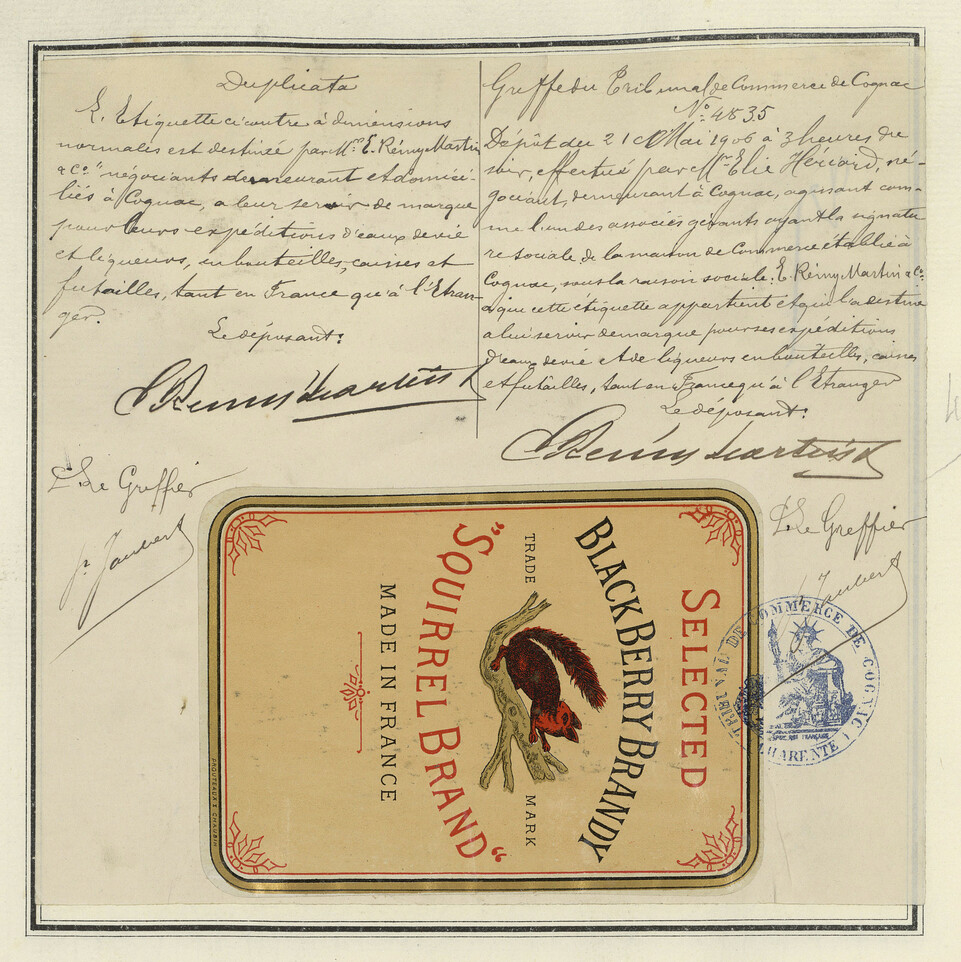 Duplicata
L'Etiquette ci contre à dimensions
normales est destinée par Mrs E. Rémy Martin
& Co négociants demeurant et domici-
liés à Cognac, a leur servir de marque
pour leurs expéditions d'eaux de vie
et liqueurs, en bouteilles, caisses et
futailles, tant en France qu'à l'Etran-
ger.
Le déposant:
E Remy Martin & Co
Le Greffier
Jaubert
Greffe du Tribunal de Commerce de Cognac
No: 4835
Dépôt du 21 Mai 1906 à 3 heures du
soir, effectué par Mr Elie Hériard, né-
gociant, demeurant à Cognac, agissant com-
me l'un des associés gérants ayant la signatu
re sociale de la maison de Commerce établie à
Cognac, sous la raison sociale: E. Rémy Martin & Co.
à qui cette étiquette appartient et qui l'a destine
a lui servir de marque pour ses expéditions
d'eaux de vie et de liqueurs en bouteilles, caisses
et futailles, tant en France qu'à l'Etranger
Le déposant:
E Rémy Martin & Co
Le Greffier
Jaubert
SELECTED
BLACKBERRY BRANDY
TRADE MARK
"SQUIRREL BRAND"
MADE IN FRANCE
PROUTEAUX & CHAUBIN
TRIBUNAL DE COMMERCE DE COGNAC
CHARENTE